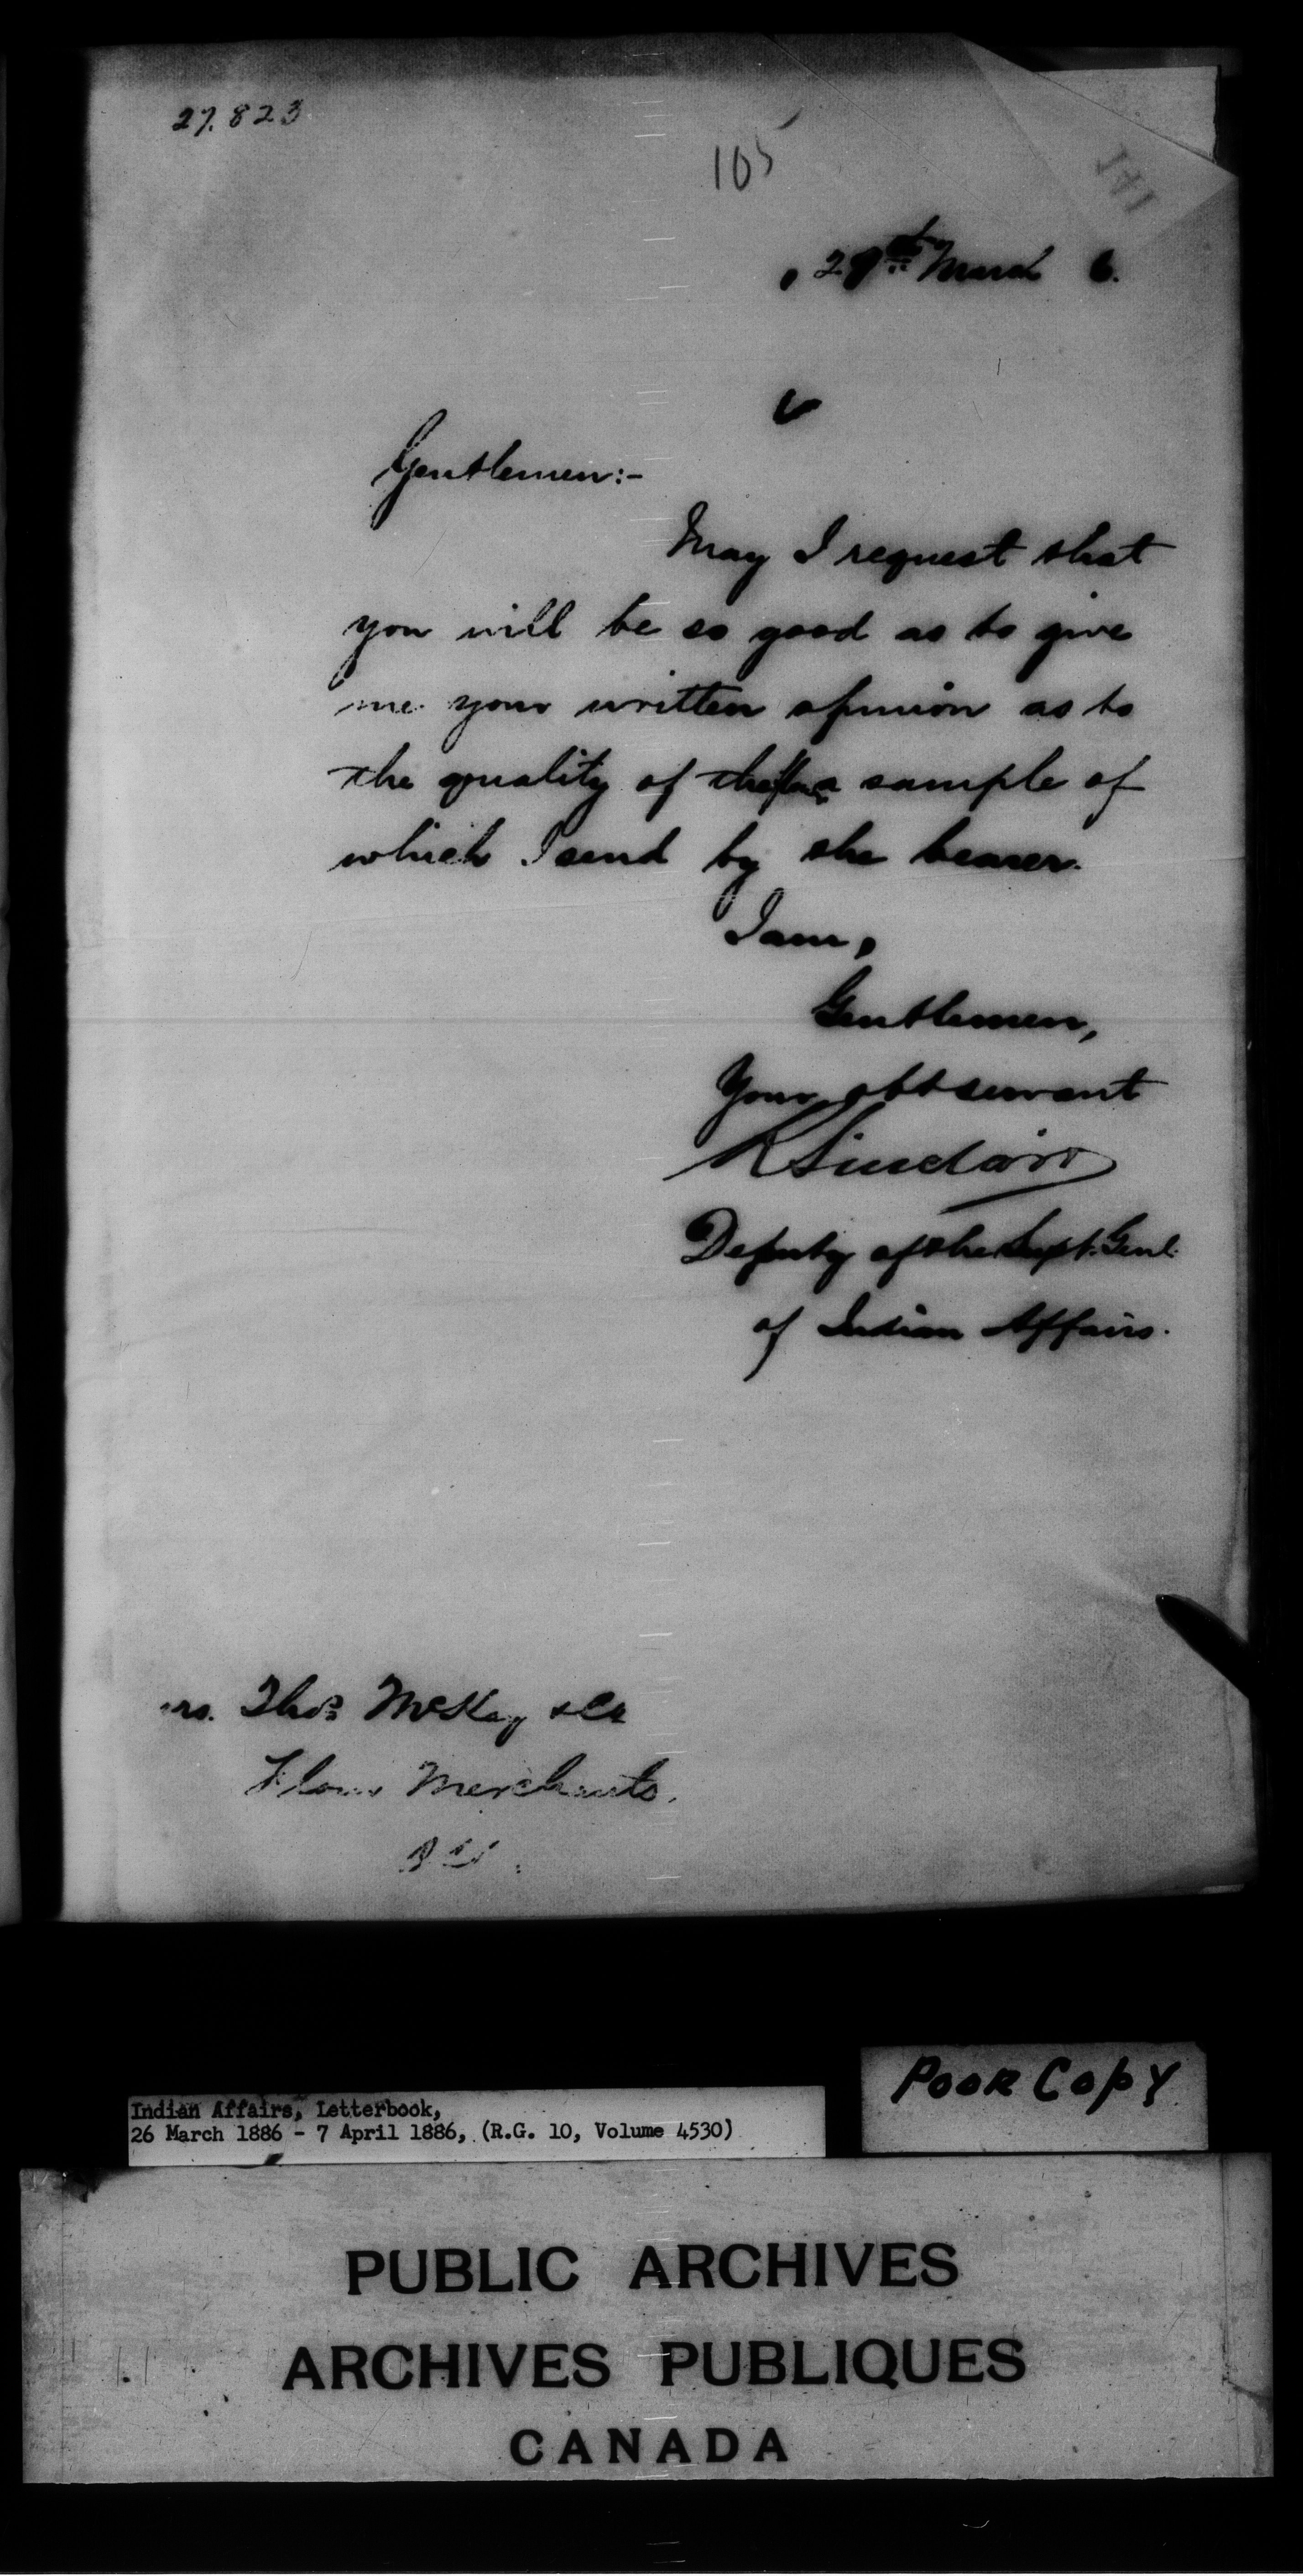 27.823
105
29th March 6.
Gentlemen:-
May I request that
you will be so good as to give
me your written opinion as to
the quality of the flour a sample of
which I send by the bearer.
I am,
Gentlemen,
Your obt servant
R Sinclair
Deputy of the Supt. Genl.
of Indian Affairs.
Thos McKay & Co
Flour Merchants.
Poor Copy
Indian Affairs, Letterbook,
26 March 1886 - 7 April 1886, (R.G. 10, Volume 4530)
PUBLIC ARCHIVES
ARCHIVES PUBLIQUES
CANADA